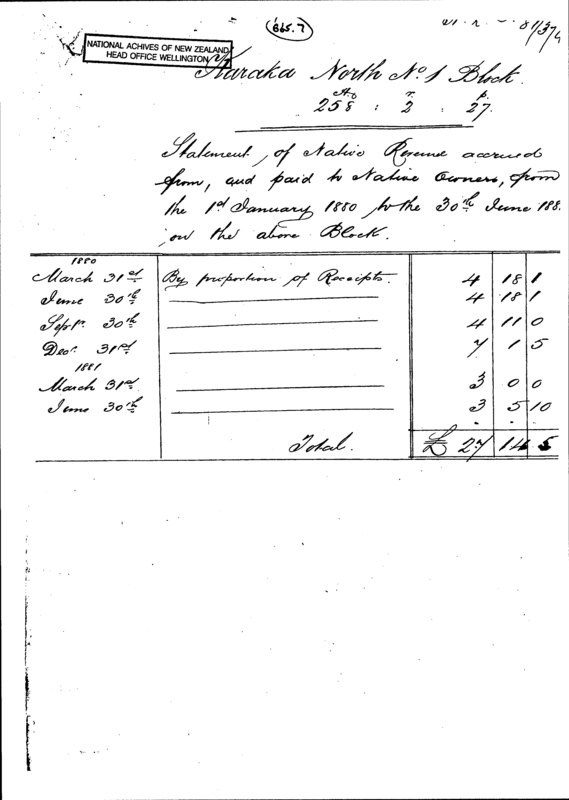 (865.7)
81/374
NATIONAL ACHIVES OF NEW ZEALAND
HEAD OFFICE WELLINGTON
Karaka North No 1 Block
A. r. p.
258 : 2 : 27.
Statement of Native Revenue accrued
from, and paid to Native Owners, from
the 1st January 1880 to the 30th June 188
on the above Block.
1880
March 31st By proportion of Receipts. 4 18 1
June 30th 4 18 1
Septr. 30th 4 11 0
Decr. 31st 7 1 5
1881
March 31st 3 0 0
June 30th 3 5 10
Total. £ 27 14 5